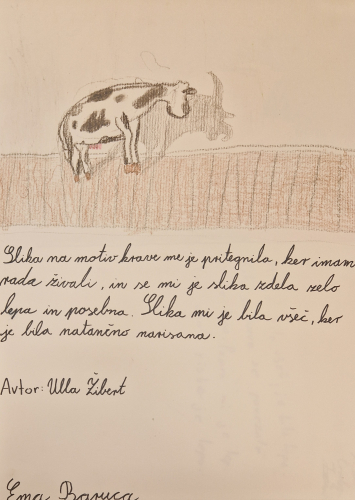 Slika na motiv krave me je pritegnila, ker imam
rada živali, in se mi je slika zdela zelo
lepa in posebna. Slika mi je bila všeč, ker
je bila natančno narisana.
Avtor: Ulla Žibert
Ema